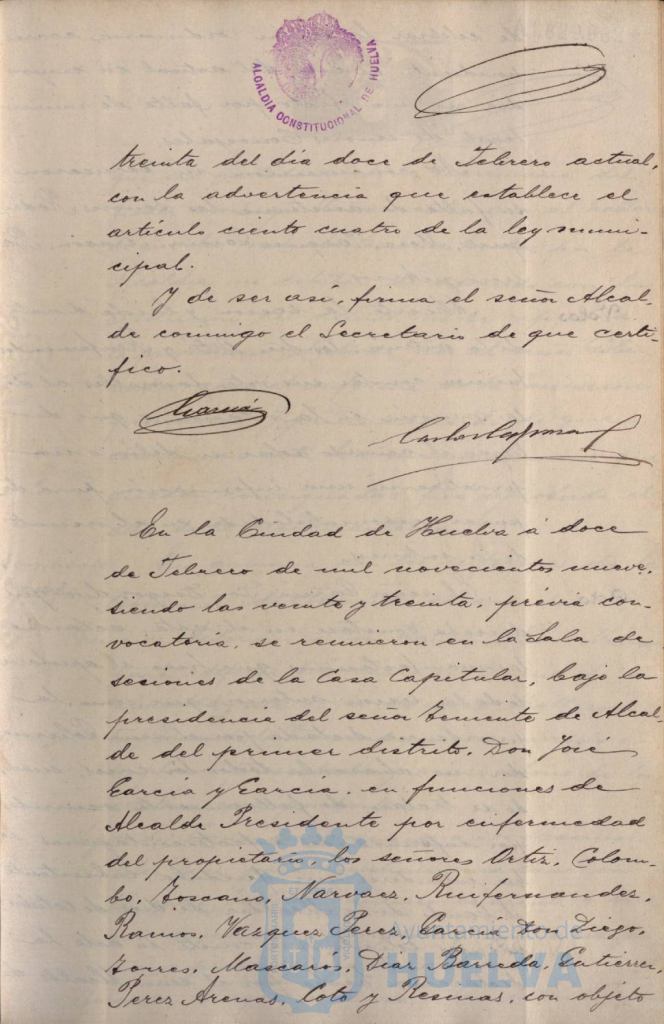 ALCALDIA CONSTITUCIONAL DE HUELVA
treinta del dia doce de Febrero actual,
con la advertencia que establece el
artículo ciento cuatro de la ley muni-
cipal.
Y de ser así, firma el señor Alcal-
de conmigo el Secretario de que certi-
fico.
García
En la Ciudad de Huelva á doce
de Febrero de mil novecientos nueve,
siendo las veinte y treinta, prévia con-
vocatoria, se reunieron en la Sala de
sesiones de la Casa Capitular, bajo la
presidencia del señor Teniente de Alcal-
de del primer distrito, Don José
García y García, en funciones de
Alcalde Presidente por enfermedad
del propietario, los señores Ortiz, Colom-
bo, Toscano, Narvaez, Ruifernandez,
Ramos, Vazquez Perez, García Don Diego,
Torres, Mascarós, Diaz Barreda, Gutierrez,
Perez Arenas, Coto y Resinas, con objeto
Ayuntamiento de
HUELVA